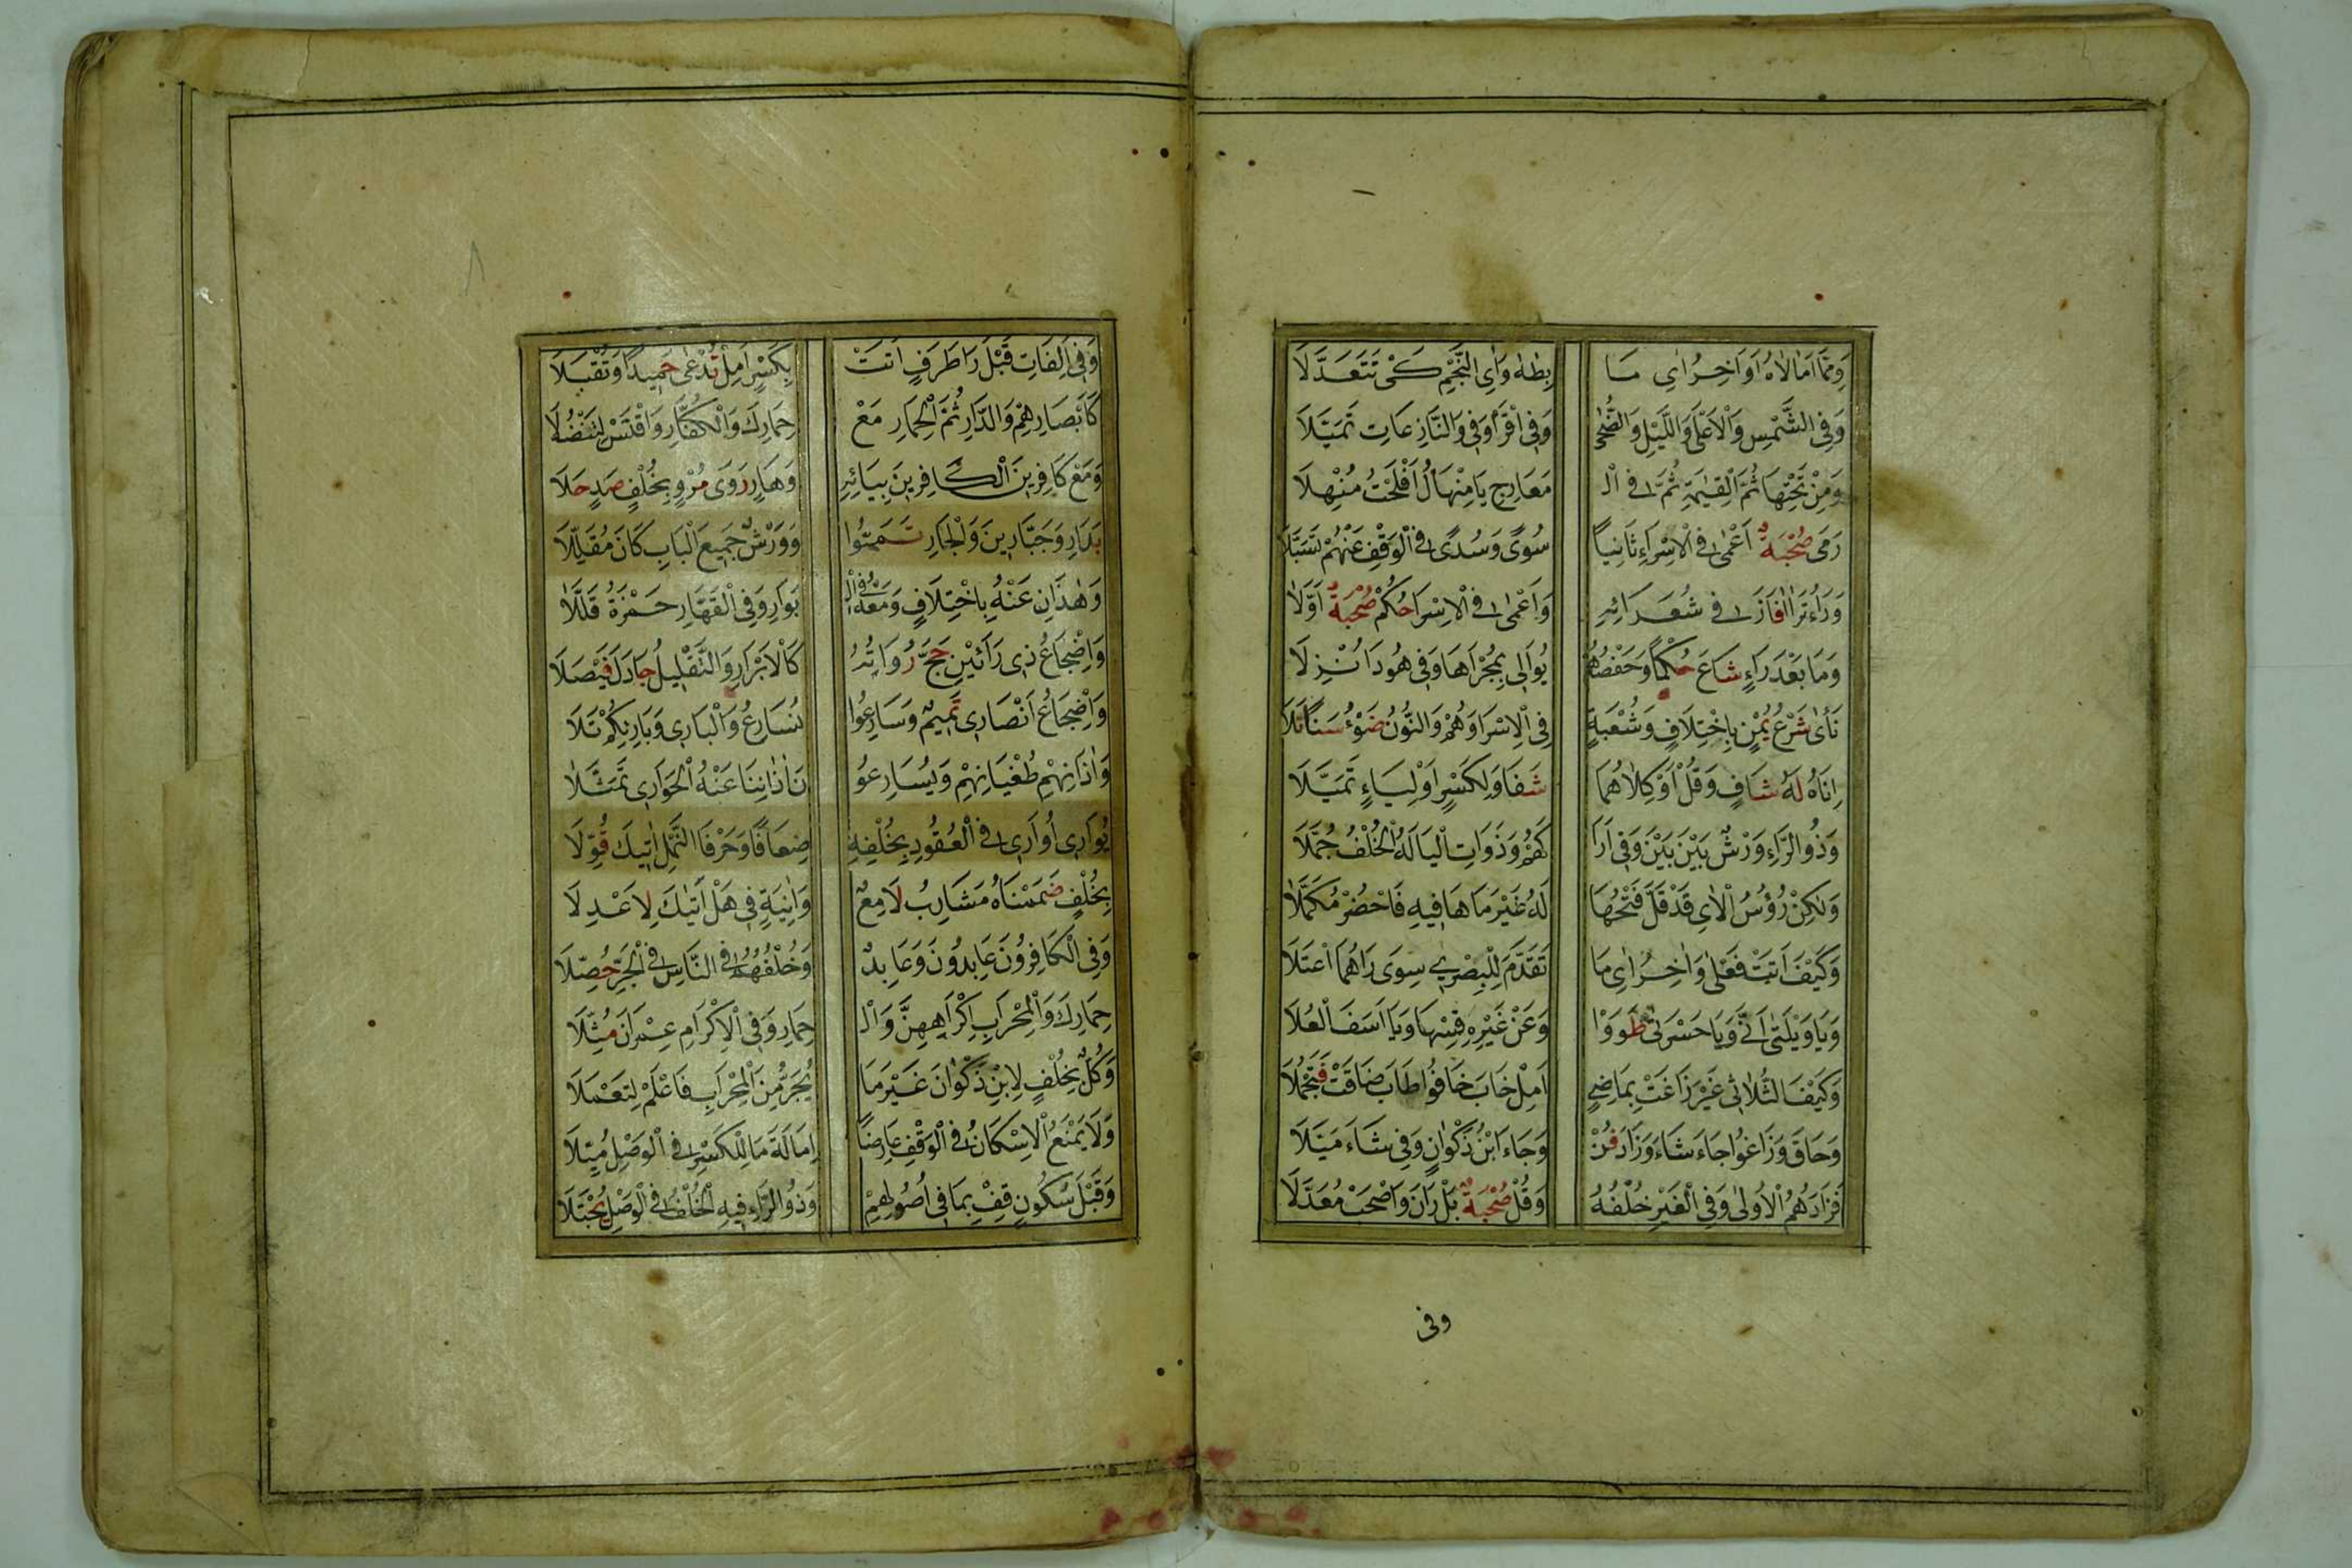 وَمِمَّا اَمَالَاهُ اَوَاخِرُ اٰيِ مَا بِطٰهٰ وَاٰيِ النَّجْمِ كَىْ تَتَعَدَّلَا
وَفِى الشَّمْسِ وَالْاَعْلٰى وَاللَّيْلِ وَالضُّحٰى وَفِى اقْرَأْ وَفِى وَالنَّازِعَاتِ تَمَيَّلَا
وَمِنْ تَحْتِهَا ثُمَّ الْقِيٰمَةِ ثُمَّ فِى الْ مَعَارِجِ يَا مِنْهَالُ اَفْلَحْتَ مُنْهِلَا
رَمٰى صُحْبَةٌ اَعْمٰى فِى الْاِسْرَاءِ ثَانِيًا سُوًى وَسُدًى فِى الْوَقْفِ عَنْهُمْ تَسَبَّلَا
وَرَاءُ تَرَاءٰا فَازَ فِى شُعَرَائِهِ وَاَعْمٰى فِى الْاِسْرَا حُكْمُ صُحْبَةٌ اَوَّلَا
وَمَا بَعْدَ رَاءٍ شَاعَ حُكْمًا وَحَفْصُهُمْ يُوَالِى بِمَجْرٰىهَا وَفِى هُودَ اُنْزِلَا
نَاٰى شَرْعُ يُمْنٍ بِاخْتِلَافٍ وَشُعْبَةٌ فِى الْاِسْرَا وَهُمْ وَالنُّونُ ضَوْءُ سَنًا تَلَا
اِنَاهُ لَهُ شَافٍ وَقُلْ اَوْ كِلَاهُمَا شَفَا وَلِكَسْرٍ اَوْ لِيَاءٍ تَمَيَّلَا
وَذُو الرَّاءِ وَرْشٌ بَيْنَ بَيْنَ وَفِى اَرَا كَهُمْ وَذَوَاتِ الْيَا لَهُ الْخُلْفُ جُمِّلَا
وَلٰكِنْ رُؤُسُ الْاٰيِ قَدْ قَلَّ فَتْحُهَا لَهُ غَيْرَ مَا هَا فِيهِ فَاحْضُرْ مُكَمَّلَا
وَكَيْفَ اَتَتْ فَعْلٰى وَاٰخِرُ اٰيِ مَا تَقَدَّمَ لِلْبِصْرِى سِوٰى رَاهُمَا اعْتَلَا
وَيَا وَيْلَتٰى اَنّٰى وَيَا حَسْرَتٰى طَوَوْا وَعَنْ غَيْرِهِ قِسْهَا وَيَا اَسَفَا الْعُلَا
وَكَيْفَ الثُّلَاثِى غَيْرَ زَاغَتْ بِمَاضِىٍ اَمِلْ خَابَ خَافُوا طَابَ ضَاقَتْ فَتَجْمُلَا
وَحَاقَ وَزَاغُوا جَاءَ شَاءَ وَزَادَ فُزْ وَجَاءَ ابْنُ ذَكْوَانٍ وَفِى شَاءَ مَيَّلَا
فَزَادَهُمُ الْاُولٰى وَفِى الْغَيْرِ خُلْفُهُ وَقُلْ صُحْبَةٌ بَلْ رَانَ وَاصْحَبْ مُعَدَّلَا
وفى
وَفِى اَلِفَاتٍ قَبْلَ رَا طَرَفٍ اَتَتْ بِكَسْرٍ اَمِلْ تُدْعٰى حَمِيدًا وَتُقْبَلَا
كَاَبْصَارِهِمْ وَالدَّارِ ثُمَّ الْحِمَارِ مَعْ حِمَارِكَ وَالْكُفَّارِ وَاقْتَسْ لِتَنْضُلَا
وَمَعْ كَافِرِينَ الْكَافِرِينَ بِيَائِهِ وَهَارٍ رَوٰى مُرْوٍ بِخُلْفٍ صَدٍ حَلَا
بَدَارِ وَجَبَّارِينَ وَالْجَارِ تَمَّمُوا وَوَرْشٌ جَمِيعَ الْبَابِ كَانَ مُقَلِّلَا
وَهٰذَانِ عَنْهُ بِاخْتِلَافٍ وَمَعْهُ فِى الْ بَوَارِ وَفِى الْقَهَّارِ حَمْزَةُ قَلَّلَا
وَاِضْجَاعُ ذِى رَائَيْنِ حَجَّ رُوَاتُهُ كَالْاَبْرَارِ وَالتَّقْلِيلُ جَادَلَ فَيْصَلَا
وَاِضْجَاعُ اَنْصَارِى تَمِيمٌ وَسَارِعُوا نُسَارِعُ وَالْبَارِى وَبَارِئِكُمْ تَلَا
وَاٰذَانِهِمْ طُغْيَانِهِمْ وَيُسَارِعُو نَ اٰذَانِنَا عَنْهُ الْجَوَارِى تَمَثَّلَا
يُوَارِى اُوَارِى فِى الْعُقُودِ بِخُلْفِهِ ضِعَافًا وَحَرْفَا النَّمْلِ اٰتِيكَ قُوِّلَا
بِخُلْفٍ ضَمَمْنَاهُ مَشَارِبُ لَامِعٌ وَاٰنِيَةٍ فِى هَلْ اَتٰيكَ لِاَعْدِلَا
وَفِى الْكَافِرُونَ عَابِدُونَ وَعَابِدٌ وَخُلْفُهُمُ فِى النَّاسِ فِى الْجَرِّ حُصِّلَا
حِمَارِكَ وَالْمِحْرَابِ اِكْرَاهِهِنَّ وَالْ حِمَارِ وَفِى الْاِكْرَامِ عِمْرَانَ مُثِّلَا
وَكُلٌّ بِخُلْفٍ لِابْنِ ذَكْوَانَ غَيْرَ مَا يُجَرُّ مِنَ الْمِحْرَابِ فَاعْلَمْ لِتَعْمَلَا
وَلَا يَمْنَعُ الْاِسْكَانُ فِى الْوَقْفِ عَارِضًا اِمَالَةَ مَا لِلْكَسْرِ فِى الْوَصْلِ مُيِّلَا
وَقَبْلَ سُكُونٍ قِفْ بِمَا فِى اُصُولِهِمْ وَذُو الرَّاءِ فِيهِ الْخُلْفُ فِى الْوَصْلِ يُجْتَلَا